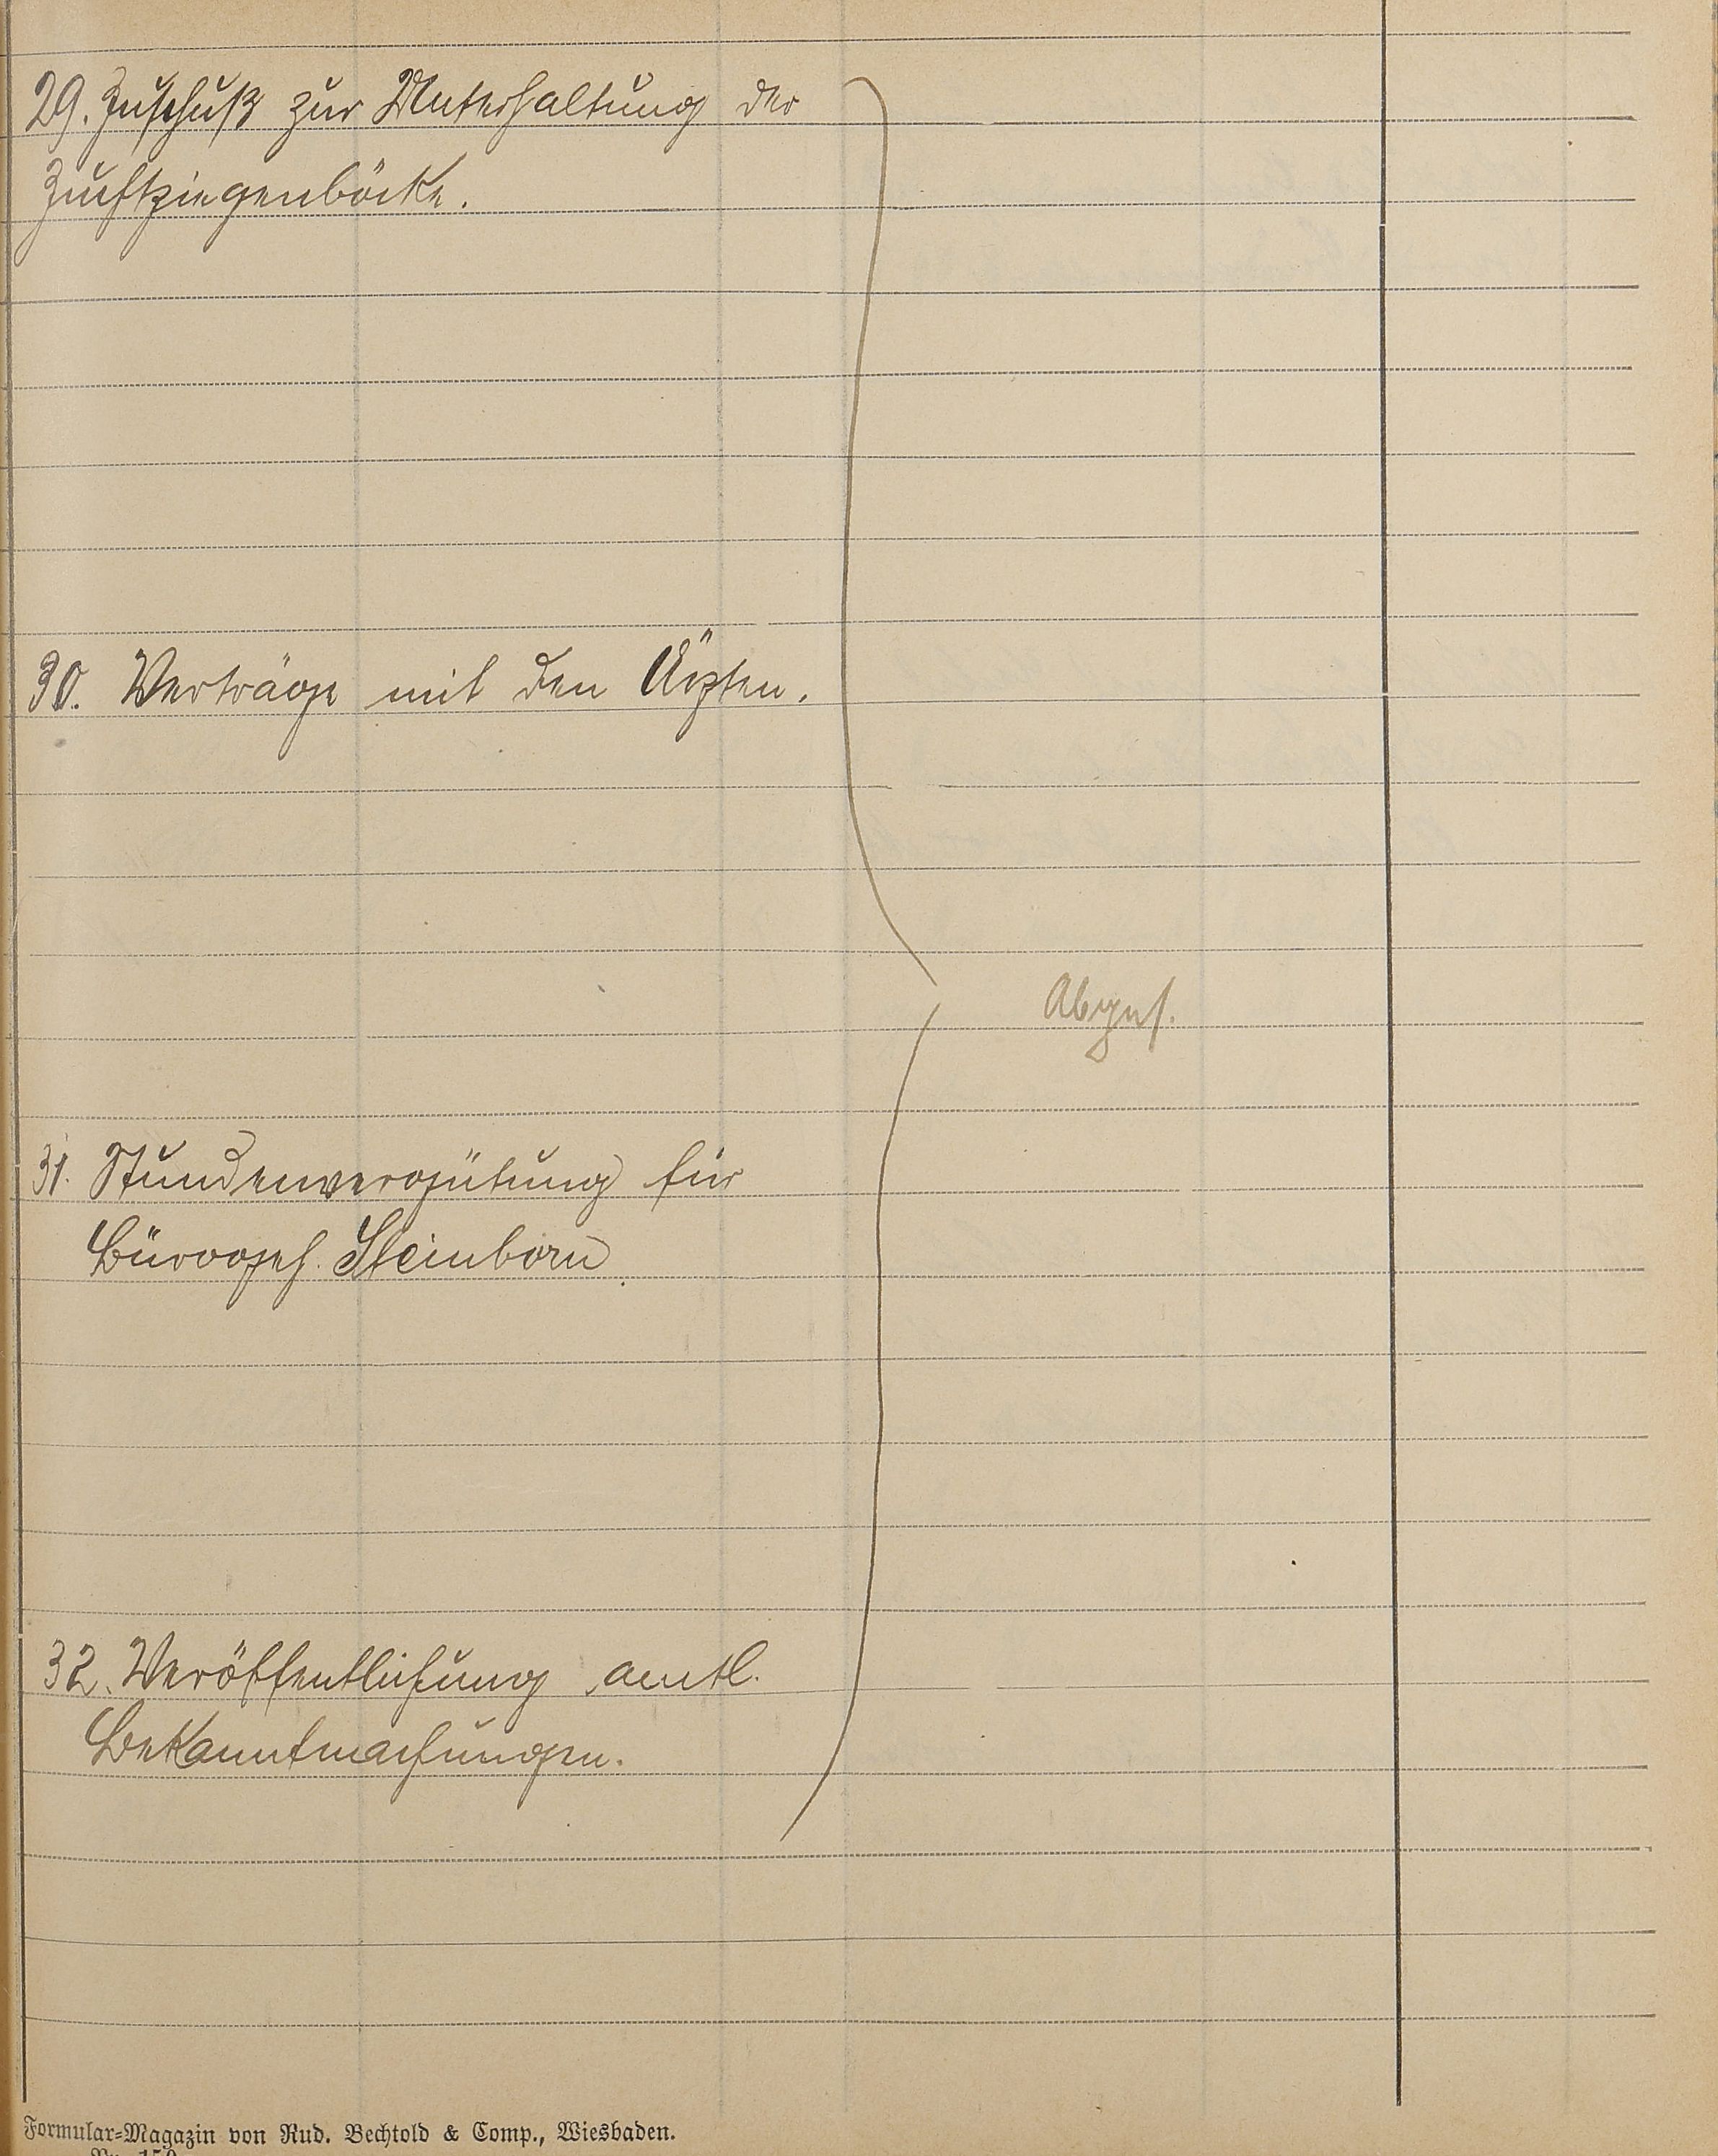 29. Zuschuß zur Unterhaltung der
Zuchtziegenböcke.
30. Verträge mit den Ärzten.
Abges.
31. Stundenvergütung für
Bürogeh. Steinborn.
32. Veröffentlichung amtl.
Bekanntmachungen.
Formular-Magazin von Rud. Bechtold & Comp., Wiesbaden.